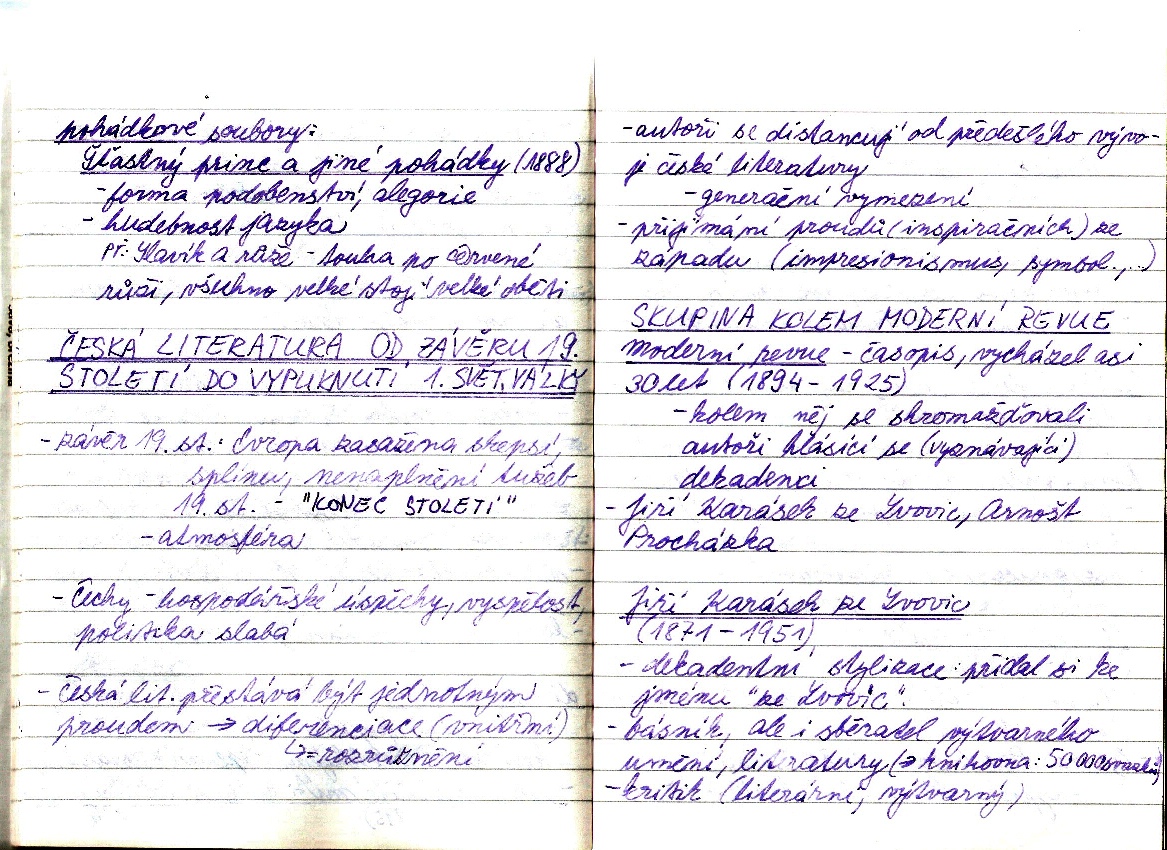 pohádkové soubory:
Šťastný princ a jiné pohádky (1888)
- forma podobenství, alegorie
- hudebnost jazyka
Př: Slavík a růže - touha po červené
růži, všechno velké stojí velké oběti
ČESKÁ LITERATURA OD ZÁVĚRU 19.
STOLETÍ DO VYPUKNUTÍ 1. SVĚT. VÁLKY
- závěr 19. st.: Evropa zasažena skepsí,
splínu, nenaplnění tužeb
19. st. - "KONEC STOLETÍ"
- atmosféra
- Čechy - hospodářské úspěchy, vyspělost,
politika slabá
- česká lit. přestává být jednotným
proudem → diferenciace (vnitřní)
↳ = rozrůznění
- autoři se distancují od předešlého vývo-
je české literatury
- generační vymezení
- přijímání proudů (inspiračních) ze
západu (impresionismus, symbol., ..)
SKUPINA KOLEM MODERNÍ REVUE
Moderní revue - časopis, vycházel asi
30 let (1894 - 1925)
- kolem něj se shromažďovali
autoři hlásící se (vyznávající)
dekadenci
- Jiří Karásek ze Lvovic, Arnošt
Procházka
Jiří Karásek ze Lvovic
(1871 - 1951)
- dekadentní stylizace: přidal si ke
jménu "ze Lvovic".
- básník, ale i sběratel výtvarného
umění, literatury (→ knihovna: 50 000 svazků)
- kritik (literární, výtvarný)